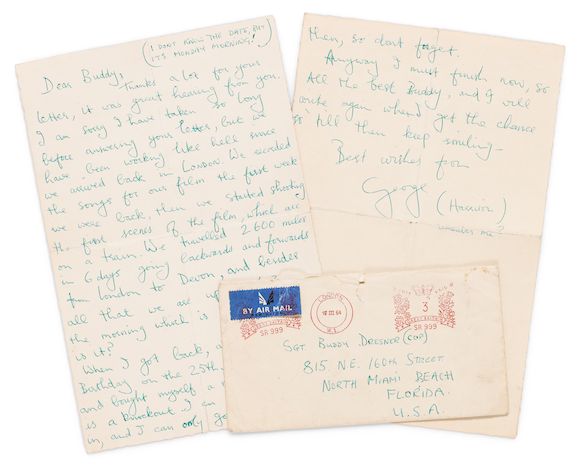 (I DONT KNOW THE DATE, BUT
ITS MONDAY MORNING!)
Dear Buddy,
Thanks a lot for your
letter, it was great hearing from you.
I am sorry I have taken so long
before answering your letter, but we
have been working like hell since
we arrived back in London. We recorded
the songs for our film the first week
we were back, then we started shooting
the first scenes of the film, which are
on a train. We travelled 2600 miles
in 6 days going backwards and forwards
from London to Devon, and besides
all that we are up
the morning which is
is it?
When I got back,
Birthday, on the 25th.
and bought myself a
is a knockout I
in, and I can only
then, so dont forget.
Anyway I must finish now, so
All the best Buddy, and I will
write again when I get the chance
so till then keep smiling-
Best wishes from
George (Harrison)
remember me?
BY AIR MAIL
LONDON
W.I.
16 III 64
3
SR 999
SR 999
SGT BUDDY DRESNER (COP)
815. N.E. 160th STREET
NORTH MIAMI BEACH
FLORIDA.
U.S.A.